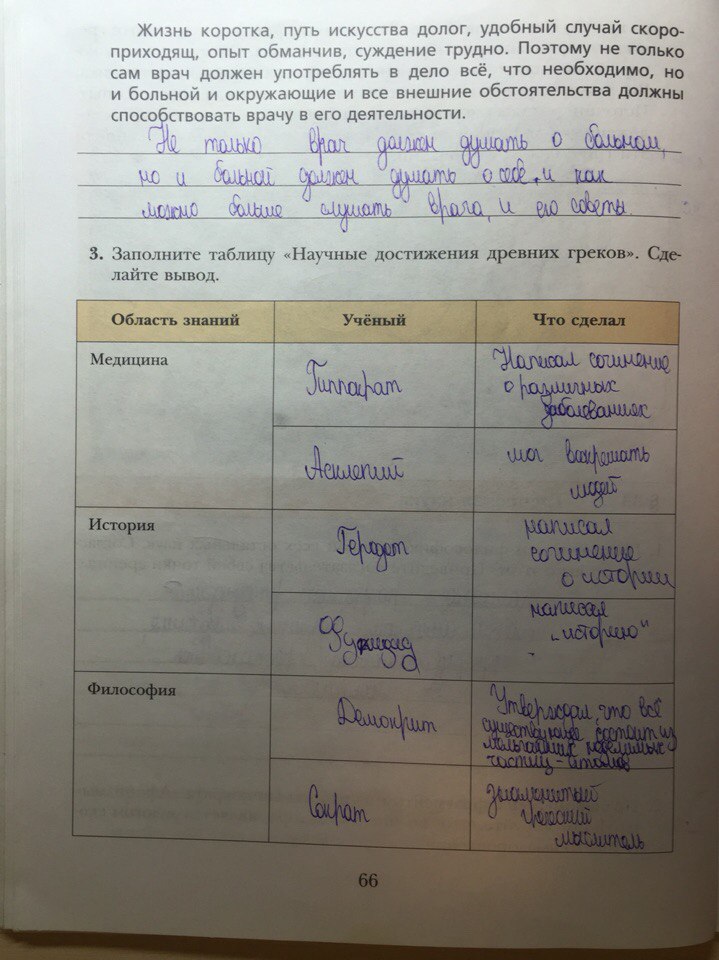 Жизнь коротка, путь искусства долог, удобный случай скоро-
приходящ, опыт обманчив, суждение трудно. Поэтому не только
сам врач должен употреблять в дело всё, что необходимо, но
и больной и окружающие и все внешние обстоятельства должны
способствовать врачу в его деятельности.
Не только врач должен думать о больном,
но и больной должен думать о себе, и как
можно больше слушать врача, и его советы.
3. Заполните таблицу «Научные достижения древних греков». Сде-
лайте вывод.
Область знаний Учёный Что сделал
Медицина
Гиппократ
Написал сочинение
о различных
заболеваниях
Асклепий
мог воскрешать
людей
История
Геродот
написал
сочинение
о истории
Фукидид
написал
„историю"
Философия
Демокрит
Утверждал, что всё
существующее состоит из
мельчайших неделимых
частиц - атомов
Сократ
знаменитый
греческий
мыслитель
66